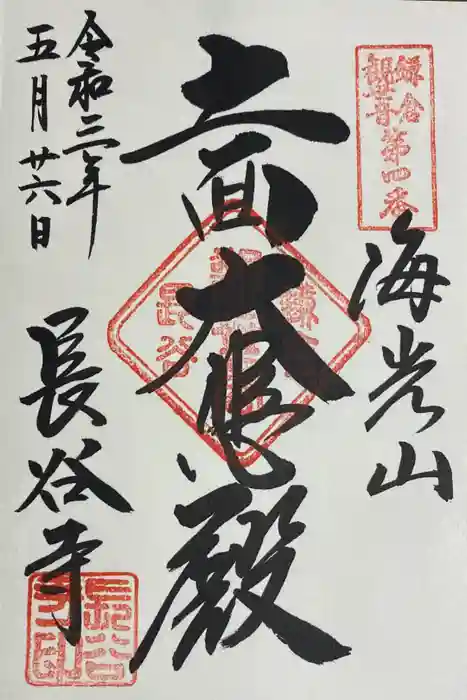 鎌倉
觀世音第四番
海光山
十一面大悲殿
令和三年
五月廿六日
長谷寺
長谷
寺印